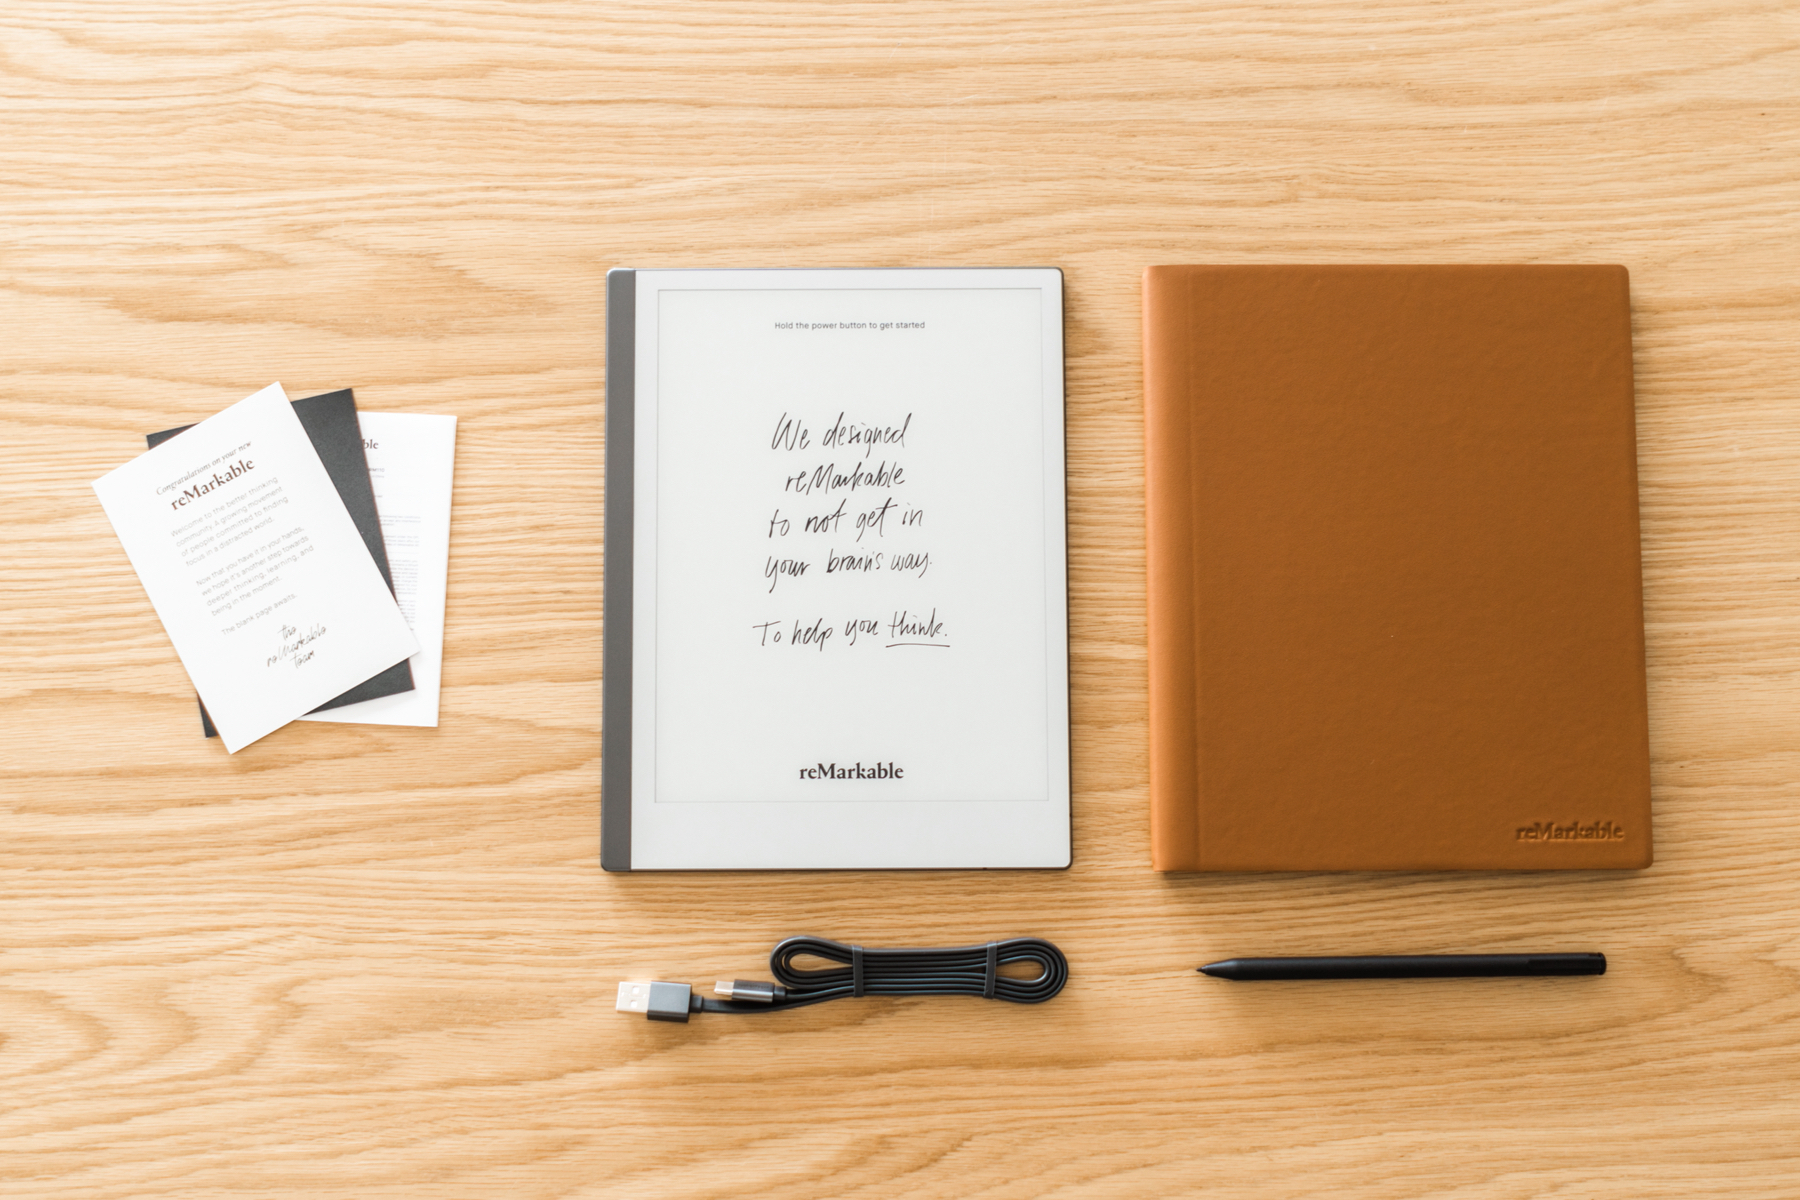 Congratulations on your new
reMarkable
Welcome to the better thinking
community. A growing movement
of people committed to finding
focus in a distracted world.
Now that you have it in your hands,
we hope it's another step towards
deeper thinking, learning, and
being in the moment.
The blank page awaits.
the
reMarkable
team
ble
Hold the power button to get started
We designed
reMarkable
to not get in
your brain's way.
To help you think.
reMarkable
reMarkable